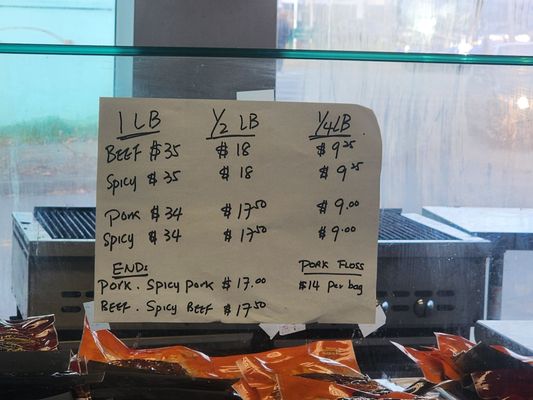 1 LB 1/2 LB 1/4 LB
BEEF $35 $18 $9.25
Spicy $35 $18 $9.25
PORK $34 $17.50 $9.00
Spicy $34 $17.50 $9.00
END: PORK FLOSS
PORK. Spicy PORK $17.00 $14 Per bag
BEEF. Spicy BEEF $17.50